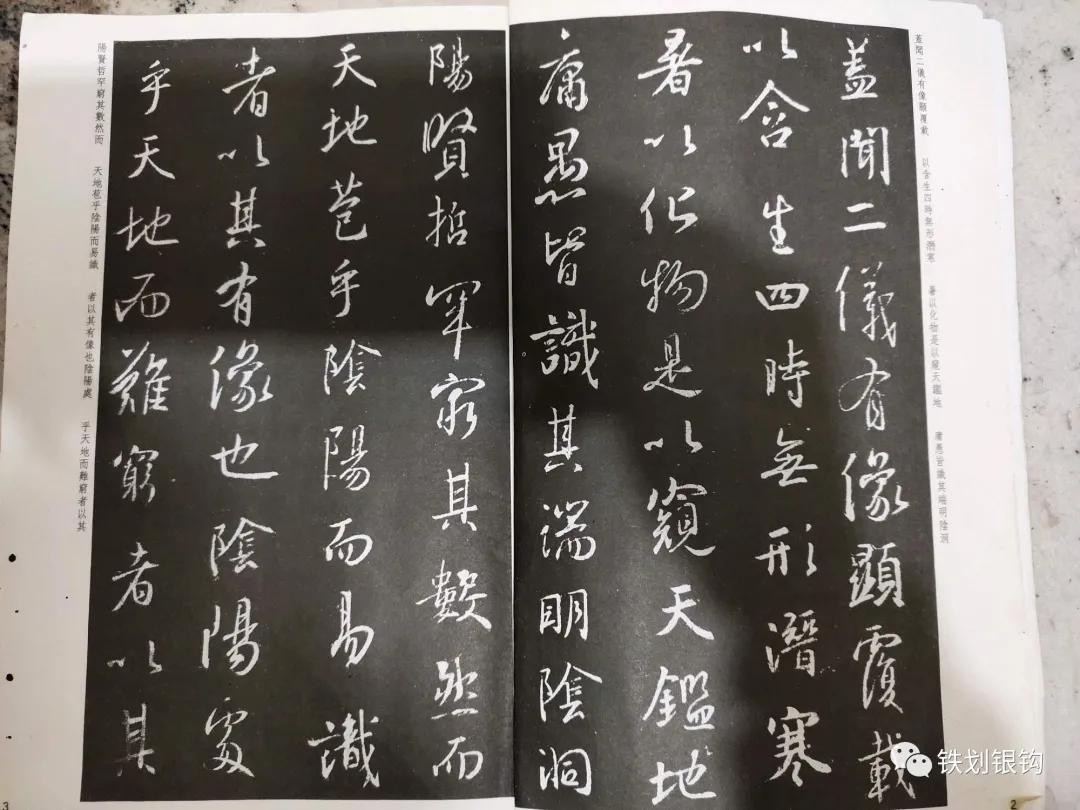 蓋聞二儀有像顯覆載
以含生四時無形潛寒
暑以化物是以窺天鑑地
庸愚皆識其端明陰洞
陽賢哲罕窮其數然而
天地苞乎陰陽而易識
者以其有像也陰陽處
乎天地而難窮者以其
蓋聞二儀有像顯覆載
以含生四時無形潛寒
暑以化物是以窺天鑑地
庸愚皆識其端明陰洞
陽賢哲罕窮其數然而
天地苞乎陰陽而易識
者以其有像也陰陽處
乎天地而難窮者以其
3
铁划银钩